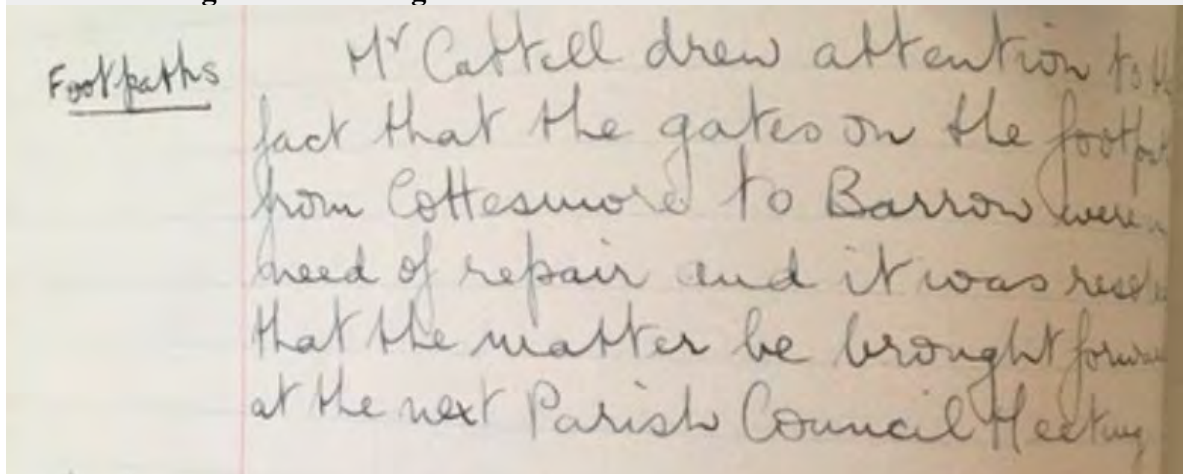 Footpaths
Mr Cattell drew attention to the
fact that the gates on the footpa
from Cottesmore to Barrow were
need of repair and it was
that the matter be brought forwa
at the next Parish Council Meeting